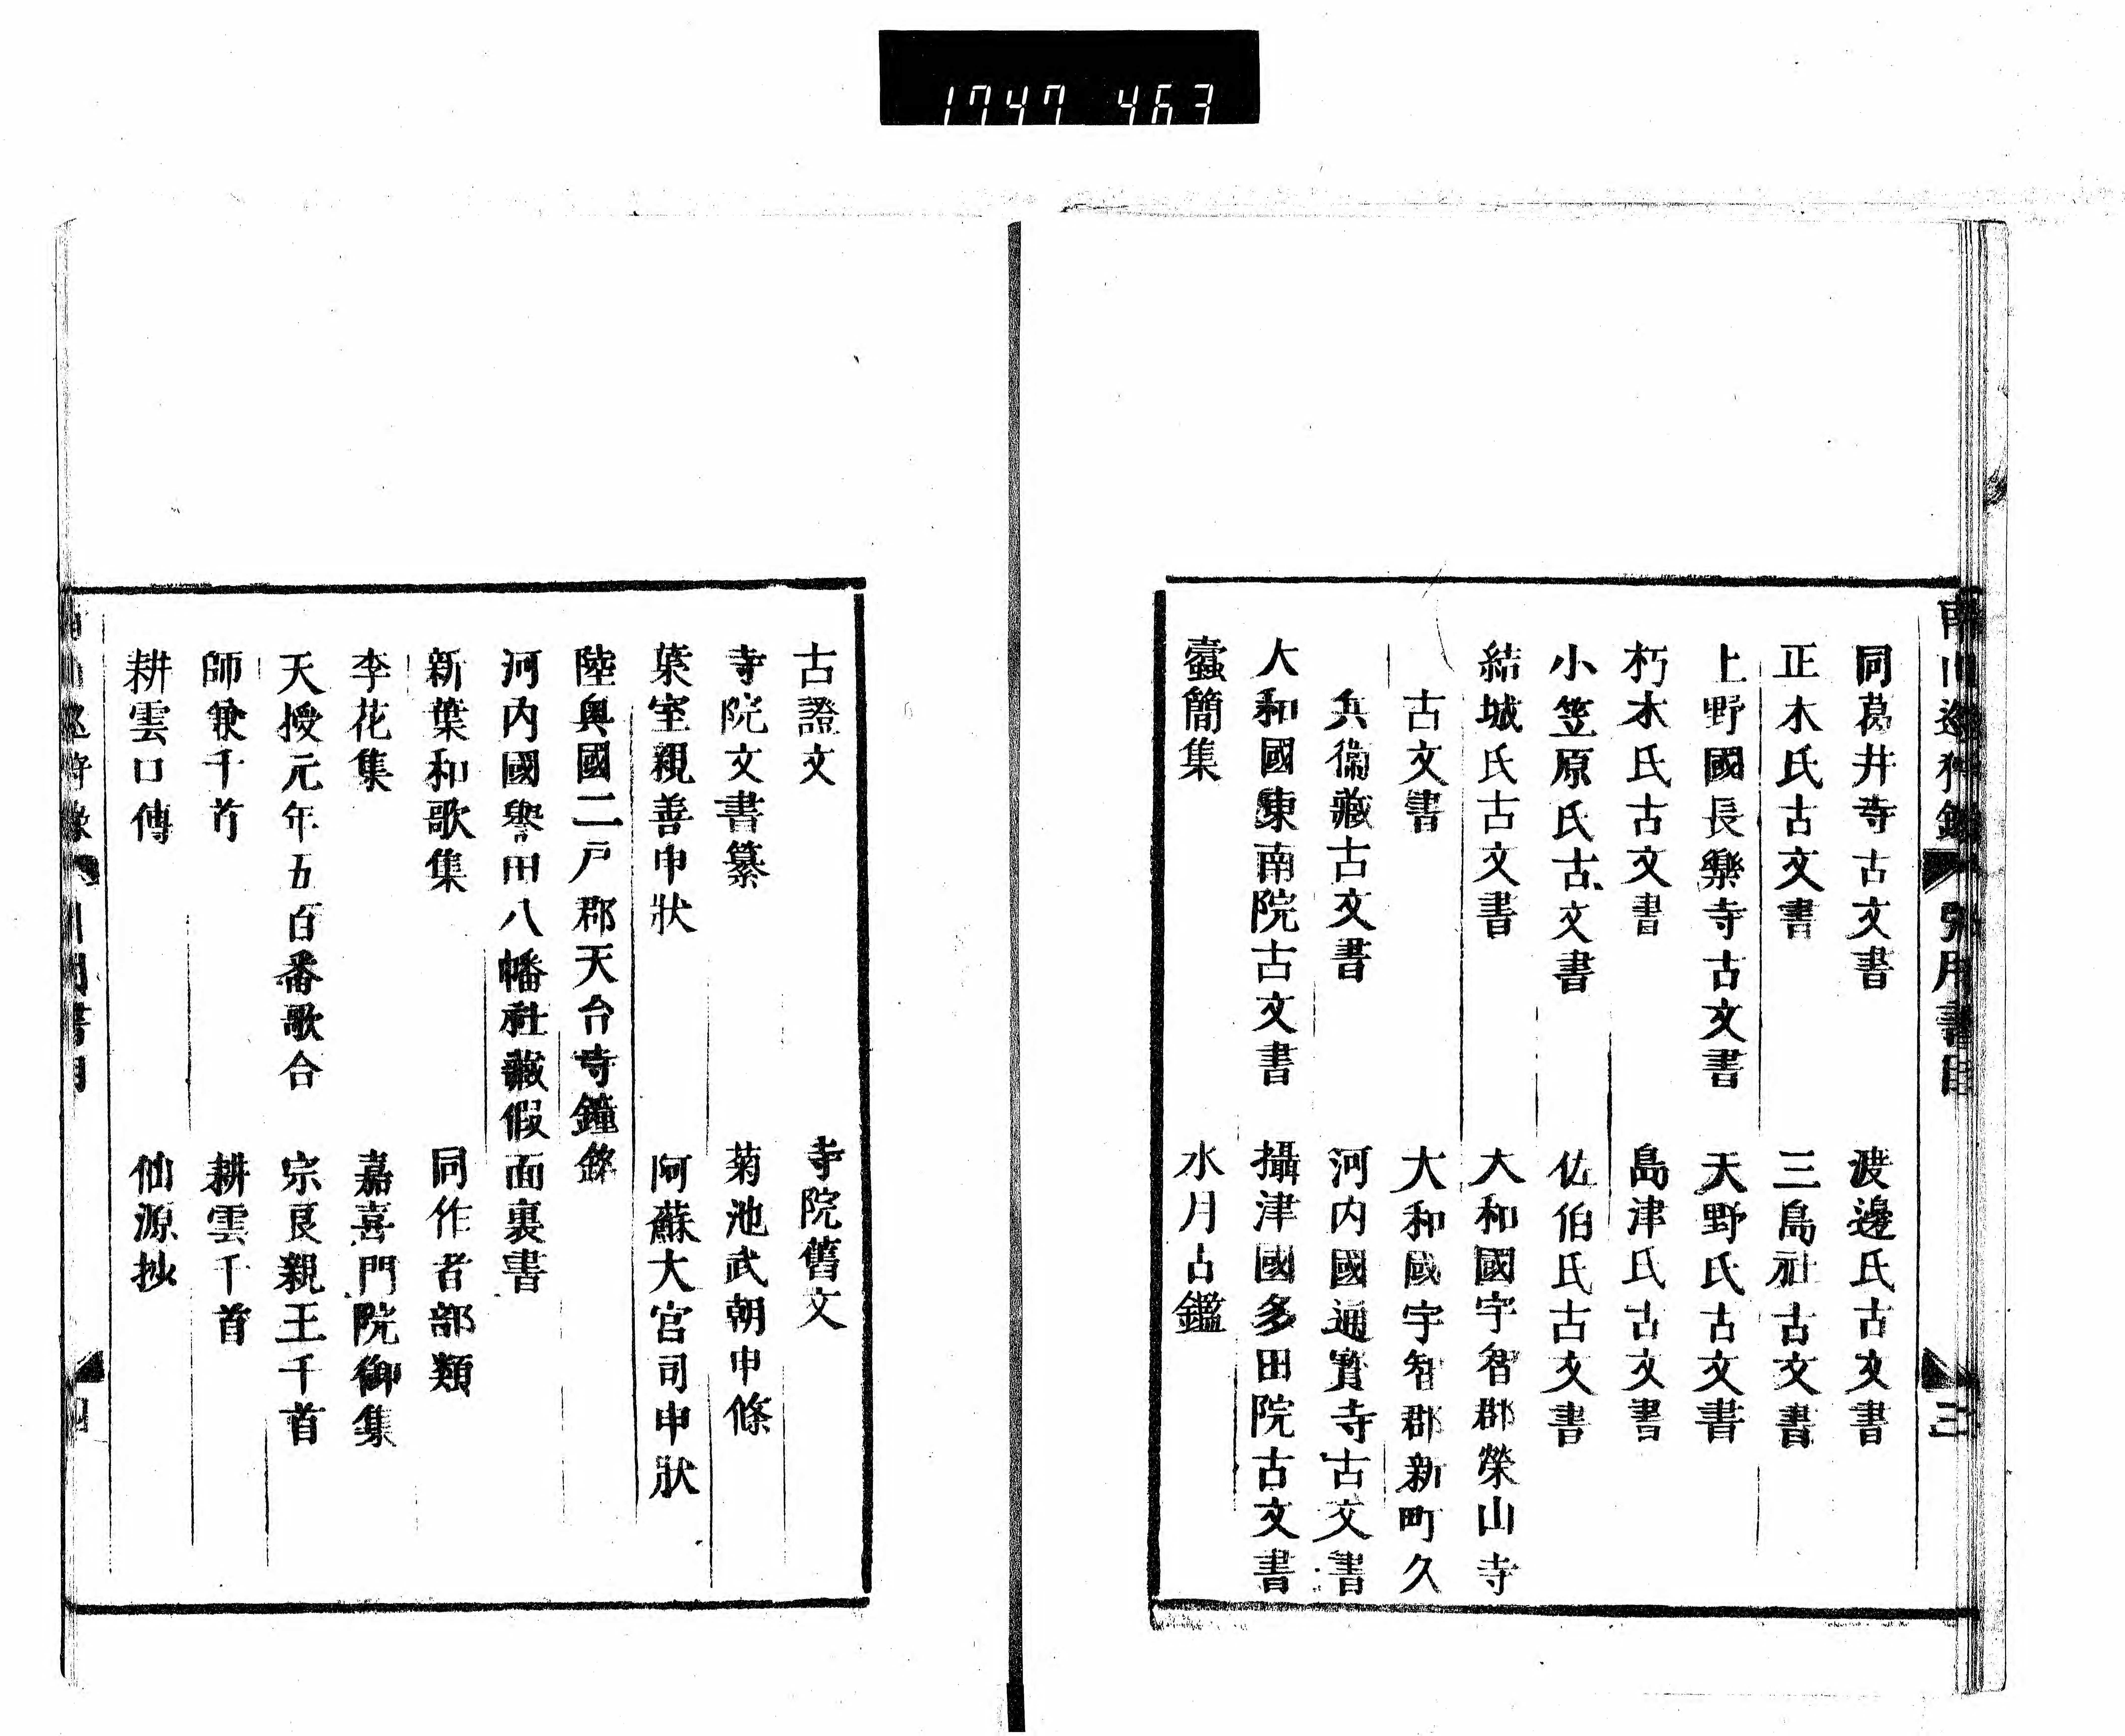 1747 463
南山巡狩録 引用書目 三
同葛井寺古文書 渡邊氏古文書
正木氏古文書 三島社古文書
上野國長樂寺古文書 天野氏古文書
朽木氏古文書 島津氏古文書
小笠原氏古文書 佐伯氏古文書
結城氏古文書 大和國宇智郡榮山寺
古文書 大和國宇智郡新町久
兵衞藏古文書 河内國通寳寺古文書
大和國東南院古文書 攝津國多田院古文書
蠧簡集 水月古鑑
古證文 寺院舊文
寺院文書纂 菊池武朝申條
葉室親善申狀 阿蘇大宮司申狀
陸奥國二戸郡天台寺鐘銘
河内國譽田八幡社藏假面裏書
新葉和歌集 同作者部類
李花集 嘉喜門院御集
天授元年五百番歌合 宗良親王千首
師兼千首 耕雲千首
耕雲口傳 仙源抄